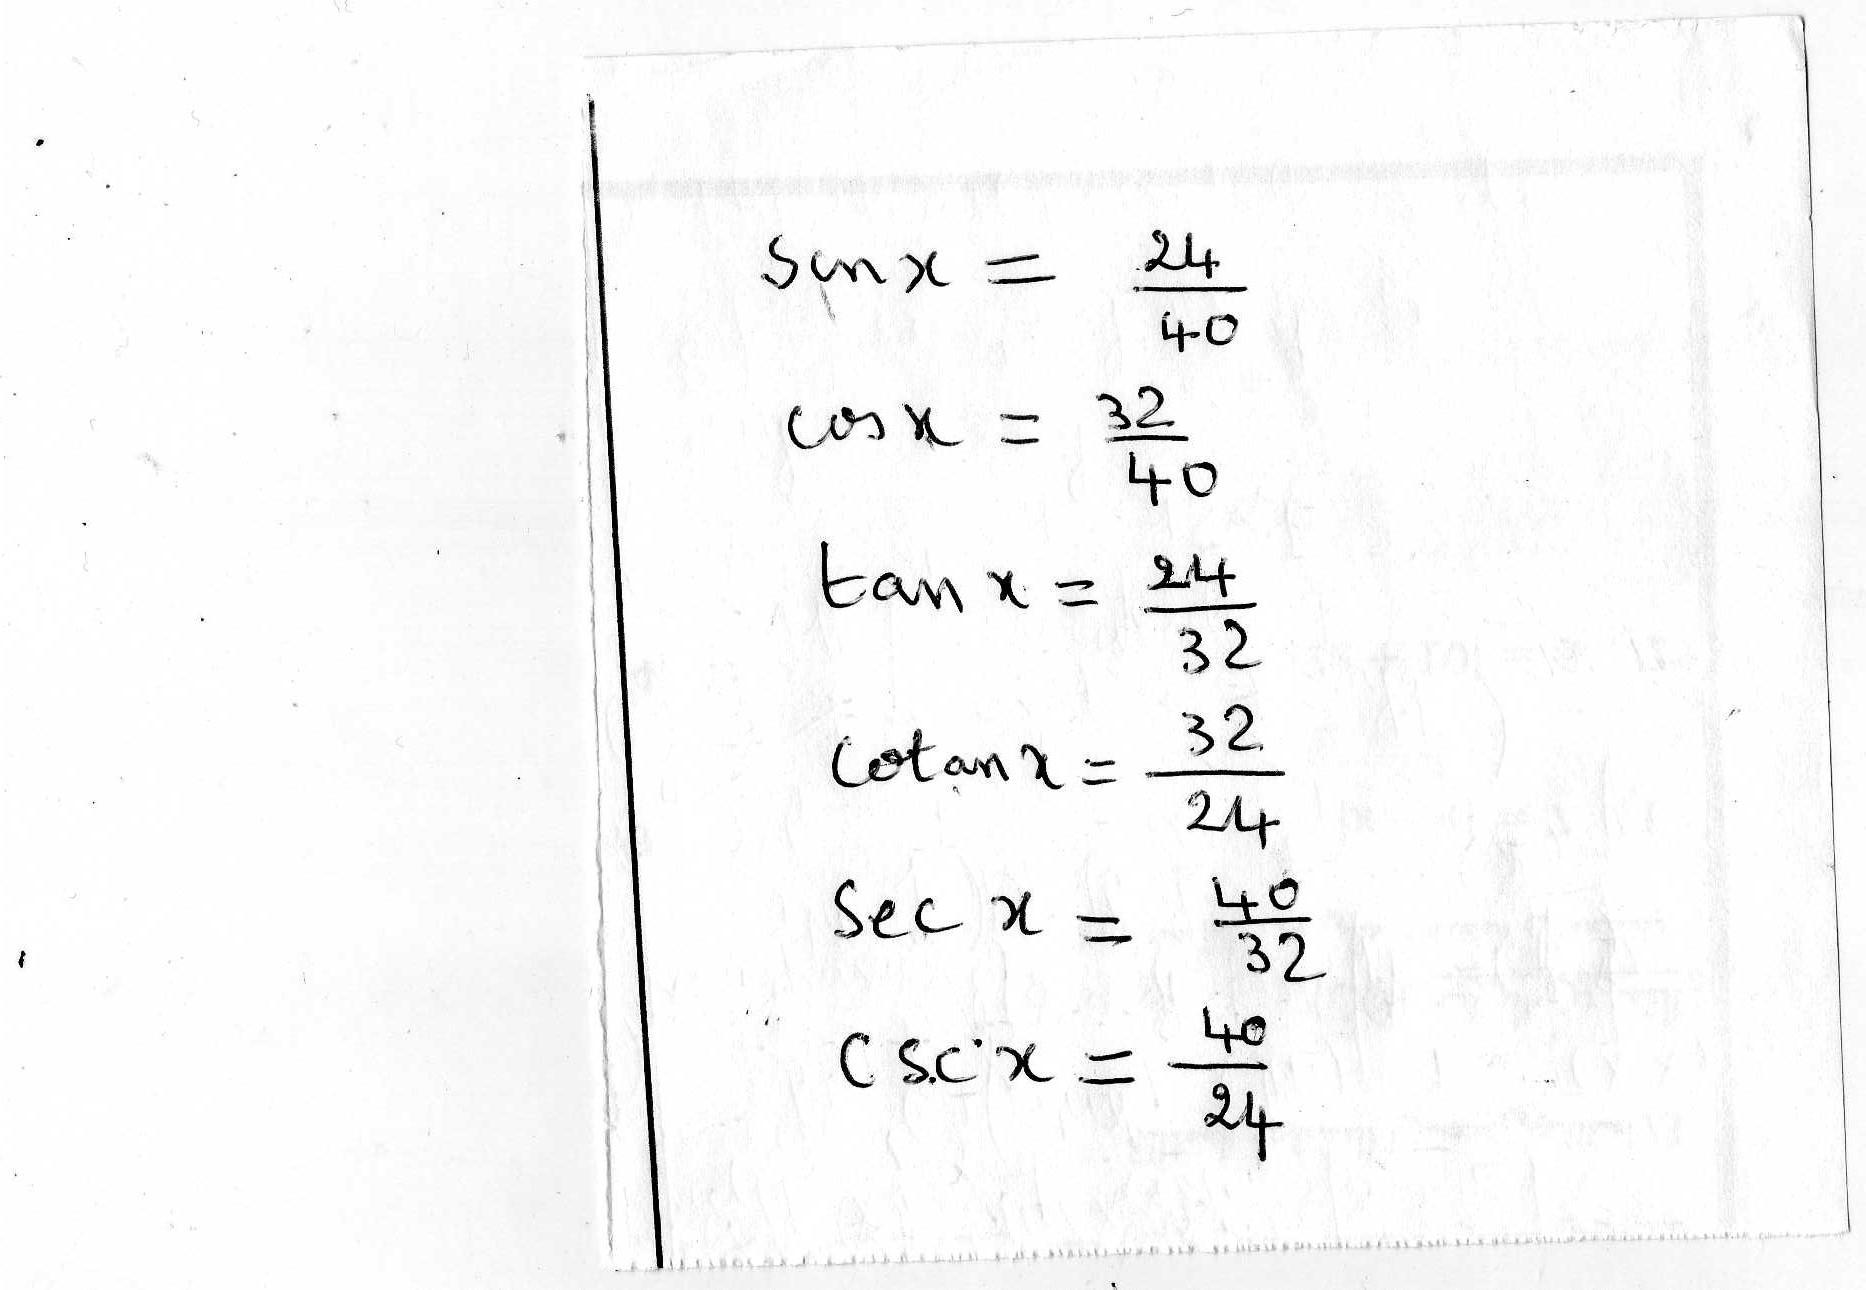 sin x = 24/40
cos x = 32/40
tan x = 24/32
cotan x = 32/24
sec x = 40/32
csc x = 40/24